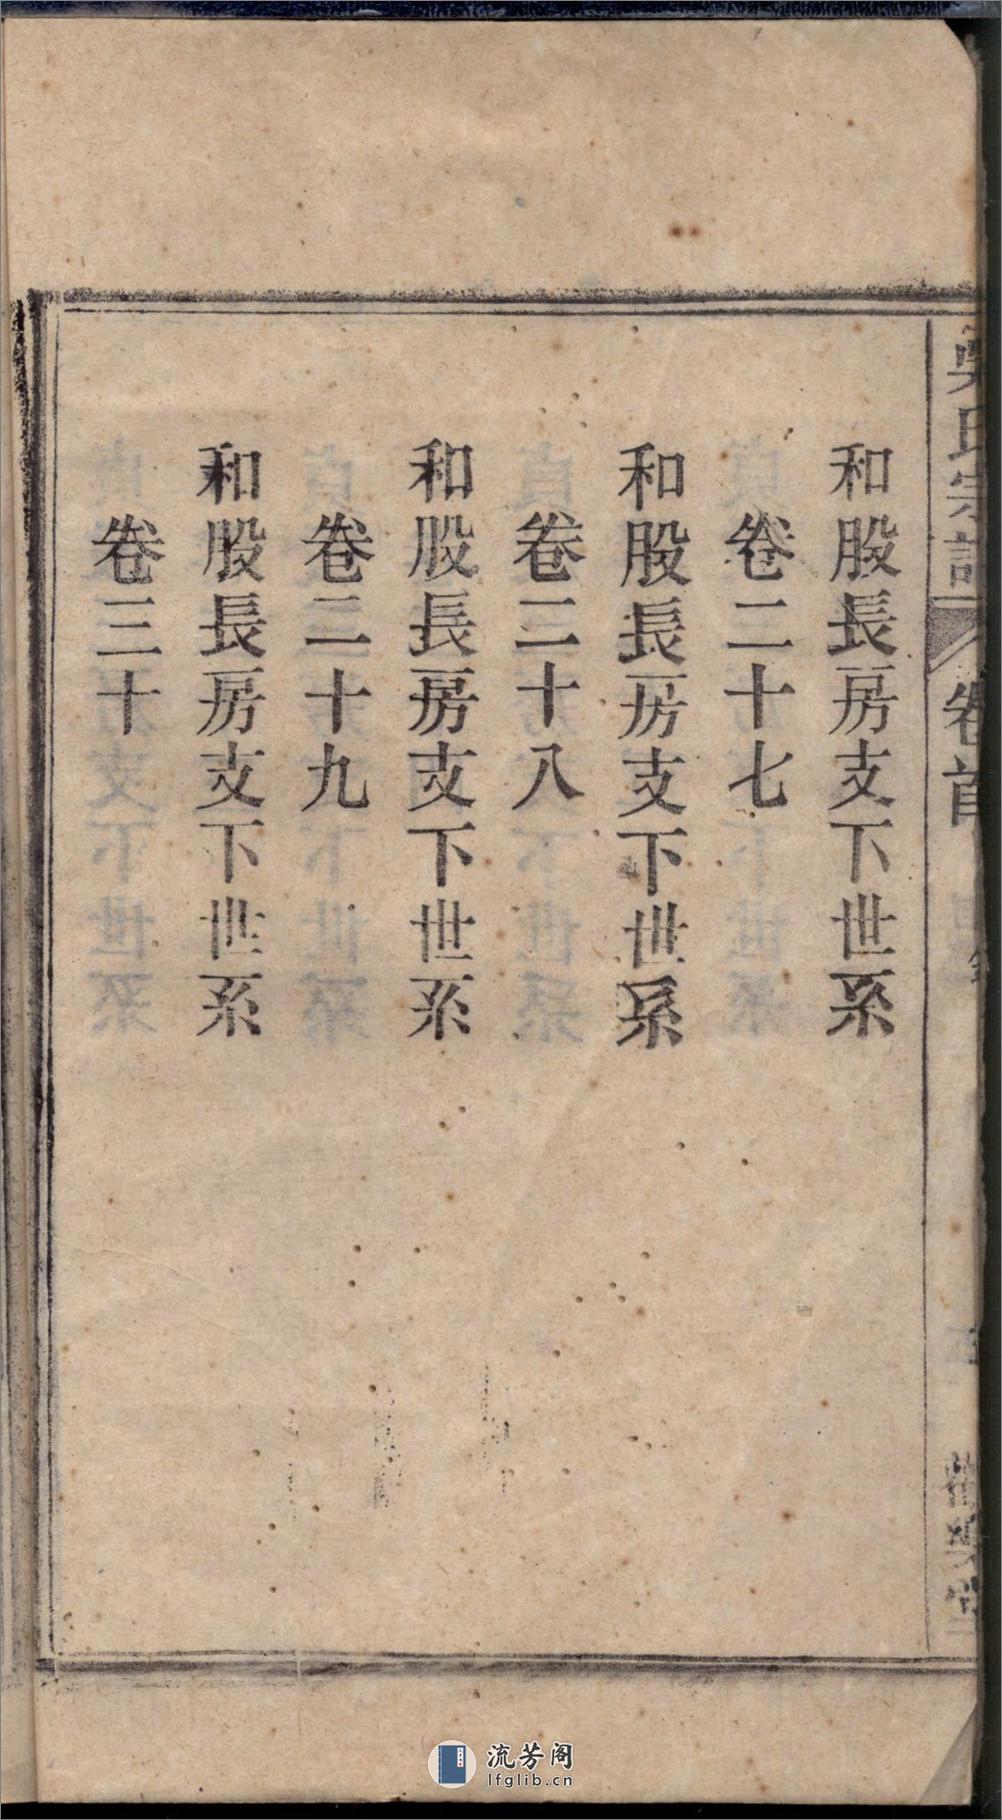 吳氏宗譜
卷首
和股長房支下世系
卷二十七
和股長房支下世系
卷二十八
和股長房支下世系
卷二十九
和股長房支下世系
卷三十
流芳阁
lfglib.cn